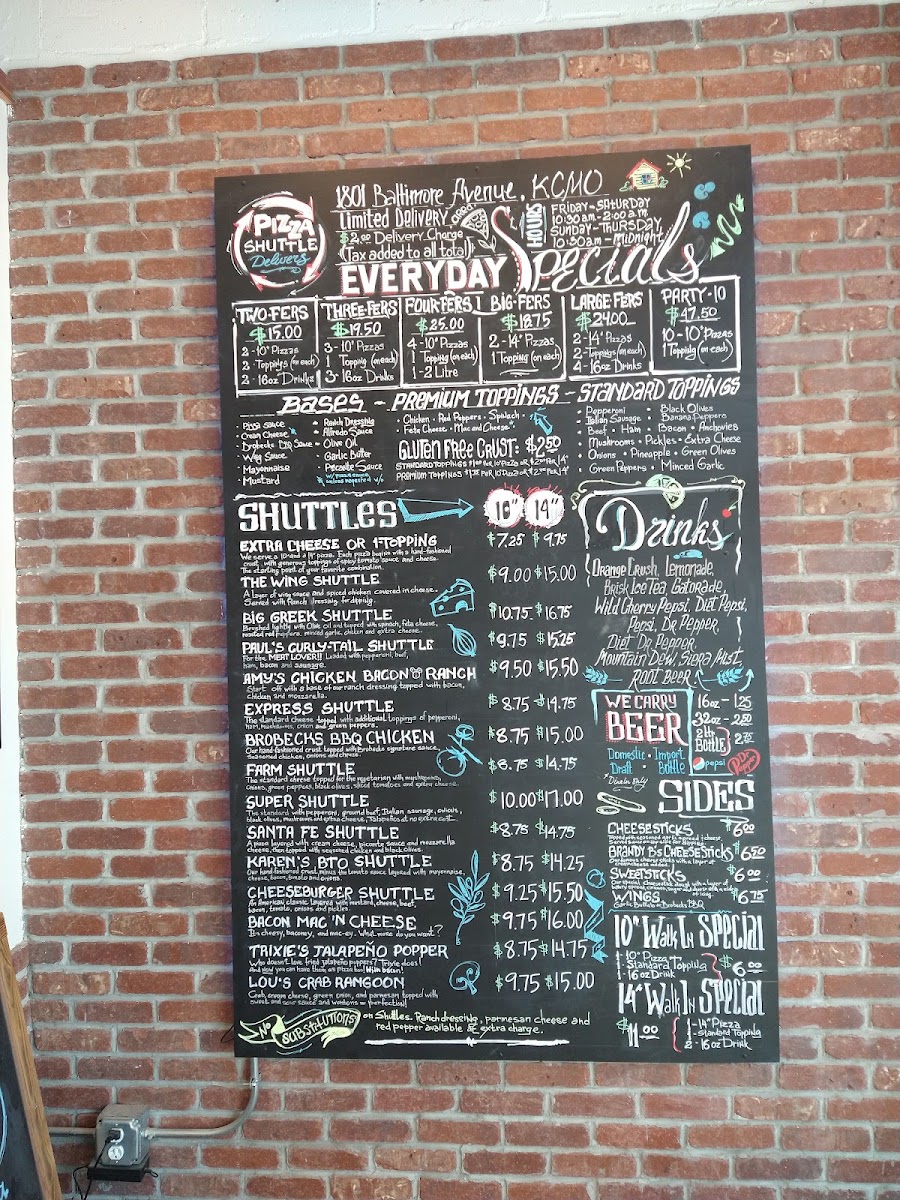 PIZZA
SHUTTLE
Delivers
1801 Baltimore Avenue, KCMO
Limited Delivery
$2.00 Delivery Charge
(Tax added to all total)
HOURS
FRIDAY - SATURDAY
10:30am - 2:00am
SUNDAY - THURSDAY
10:30am - MIDNIGHT
EVERYDAY Specials
TWO-FERS
$15.00
2 - 10" Pizzas
2 Toppings (on each)
2 - 16oz Drinks
THREE-FERS
$19.50
3 - 10" Pizzas
1 Topping (on each)
3 - 16oz Drinks
FOUR-FERS
$25.00
4 - 10" Pizzas
1 Topping (on each)
1 - 2 Litre
BIG-FERS
$18.75
2 - 14" Pizzas
1 Topping (on each)
LARGE FERS
$24.00
2 - 14" Pizzas
2 - Toppings (on each)
4 - 16oz Drinks
PARTY - 10
$47.50
10 - 10" Pizzas
1 Topping (on each)
BASES - PREMIUM TOPPINGS - STANDARD TOPPINGS
• Pizza Sauce
• Cream Cheese
• Brobecks BBQ Sauce
• Wing Sauce
• Mayonnaise
• Mustard
• Ranch Dressing
• Alfredo Sauce
• Olive Oil
• Garlic Butter
• Picante Sauce
• Chicken • Red Peppers • Spinach
• Feta Cheese • Mac and Cheese
GLUTEN FREE CRUST: $2.50
• Pepperoni • Black Olives
• Italian Sausage • Banana Peppers
• Beef • Ham • Bacon • Anchovies
• Mushrooms • Pickles • Extra Cheese
• Onions • Pineapple • Green Olives
• Green Peppers • Minced Garlic
SHUTTLES 10" 14"
EXTRA CHEESE OR 1-TOPPING $7.25 $9.75
We serve a 10" and a 14" pizza. Each pizza begins with a hand-fashioned
crust, with generous toppings of spicy tomato sauce and cheese.
The starting point of your favorite combination.
THE WING SHUTTLE $9.00 $15.00
A layer of wing sauce and spiced chicken covered in cheese.
Served with Ranch dressing for dipping.
BIG GREEK SHUTTLE $10.75 $16.75
Brushed lightly with Olive oil and topped with spinach, feta cheese,
roasted red peppers, minced garlic, chicken and extra cheese.
PAUL'S CURLY-TAIL SHUTTLE $9.75 $15.25
For the MEAT LOVER!! Loaded with pepperoni, beef,
ham, bacon and sausage.
AMY'S CHICKEN BACON RANCH $9.50 $15.50
Start off with a base of our ranch dressing topped with bacon,
chicken and mozzarella.
EXPRESS SHUTTLE $8.75 $14.75
The standard cheese topped with additional toppings of pepperoni,
ham, mushrooms, onion and green peppers.
BROBECKS BBQ CHICKEN $8.75 $15.00
Our hand-fashioned crust topped with Brobecks signature sauce,
seasoned chicken, onions and cheese.
FARM SHUTTLE $8.75 $14.75
The standard cheese topped for the vegetarian with mushrooms,
onions, green peppers, black olives, sliced tomatoes and extra cheese.
SUPER SHUTTLE $10.00 $17.00
The standard with pepperoni, ground beef, Italian sausage, onions,
black olives, mushrooms and extra cheese. Jalapeños at no extra cost.
SANTA FE SHUTTLE $8.75 $14.75
A pizza layered with cream cheese, picante sauce and mozzarella
cheese, then topped with seasoned chicken and black olives.
KAREN'S BTO SHUTTLE $8.75 $14.25
Our hand-fashioned crust, minus the tomato sauce layered with mayonnaise,
cheese, bacon, tomato and onions.
CHEESEBURGER SHUTTLE $9.25 $15.50
An American classic layered with mustard, cheese, beef,
bacon, tomato, onions and pickles.
BACON MAC 'N CHEESE $9.75 $16.00
It's cheesy, baconey, and mac-ey. What more do you want?
TRIXIE'S JALAPEÑO POPPER $8.75 $14.75
Who doesn't love fried jalapeño poppers? Trixie does!
And now you can have them on pizza too! With bacon!
LOU'S CRAB RANGOON $9.75 $15.00
Crab, cream cheese, green onion, and parmesan topped with
sweet and sour sauce and wontons = perfection!
NO SUBSTITUTIONS on Shuttles. Ranch dressing, parmesan cheese and
red pepper available @ extra charge.
Drinks
Orange Crush, Lemonade,
Brisk Ice Tea, Gatorade,
Wild Cherry Pepsi, Diet Pepsi,
Pepsi, Dr Pepper,
Diet Dr Pepper,
Mountain Dew, Siera Mist,
ROOT BEER
WE CARRY
BEER
Domestic • Import
Draft • Bottle
* Dine In Only
16oz - 1.25
32oz - 2.50
2 Ltr
Bottle 2.75
pepsi
Dr Pepper
SIDES
CHEESESTICKS $6.00
BRANDY B's CHEESESTICKS $6.50
SWEETSTICKS $6.00
WINGS $6.75
10" Walk In Special
1 - 10" Pizza
1 - Standard Topping
1 - 16oz Drink
$6.00
14" Walk In Special
$11.00
1 - 14" Pizza
1 - Standard Topping
2 - 16oz Drink